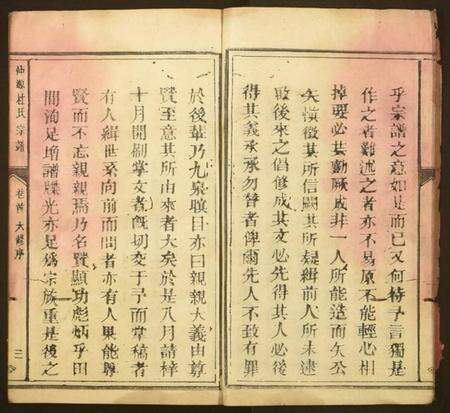 乎宗譜之意如是而已又何待予言獨是
作之者難述之者亦不易原不能輕心相
掉要必其勸厥成非一人所能造而矢公
矢慎徵其所信闕其所疑緝前人所未逮
啟後來之倡修成其文必先得其人必後
得其義承承勿替者俾爾先人不致有罪
於後輩乃九泉瞑目亦曰親親大義由尊
賢至意其所由來者大矣於是八月請梓
十月開剮掌文者既切委于予而掌稿者
有人緝世系向前而問者亦有人果能尊
賢而不忘親親焉乃名賢顯功彪炳乎田
間洵足增譜牒光亦足為宗族重是後之
杜氏宗譜
卷首 大修序
三